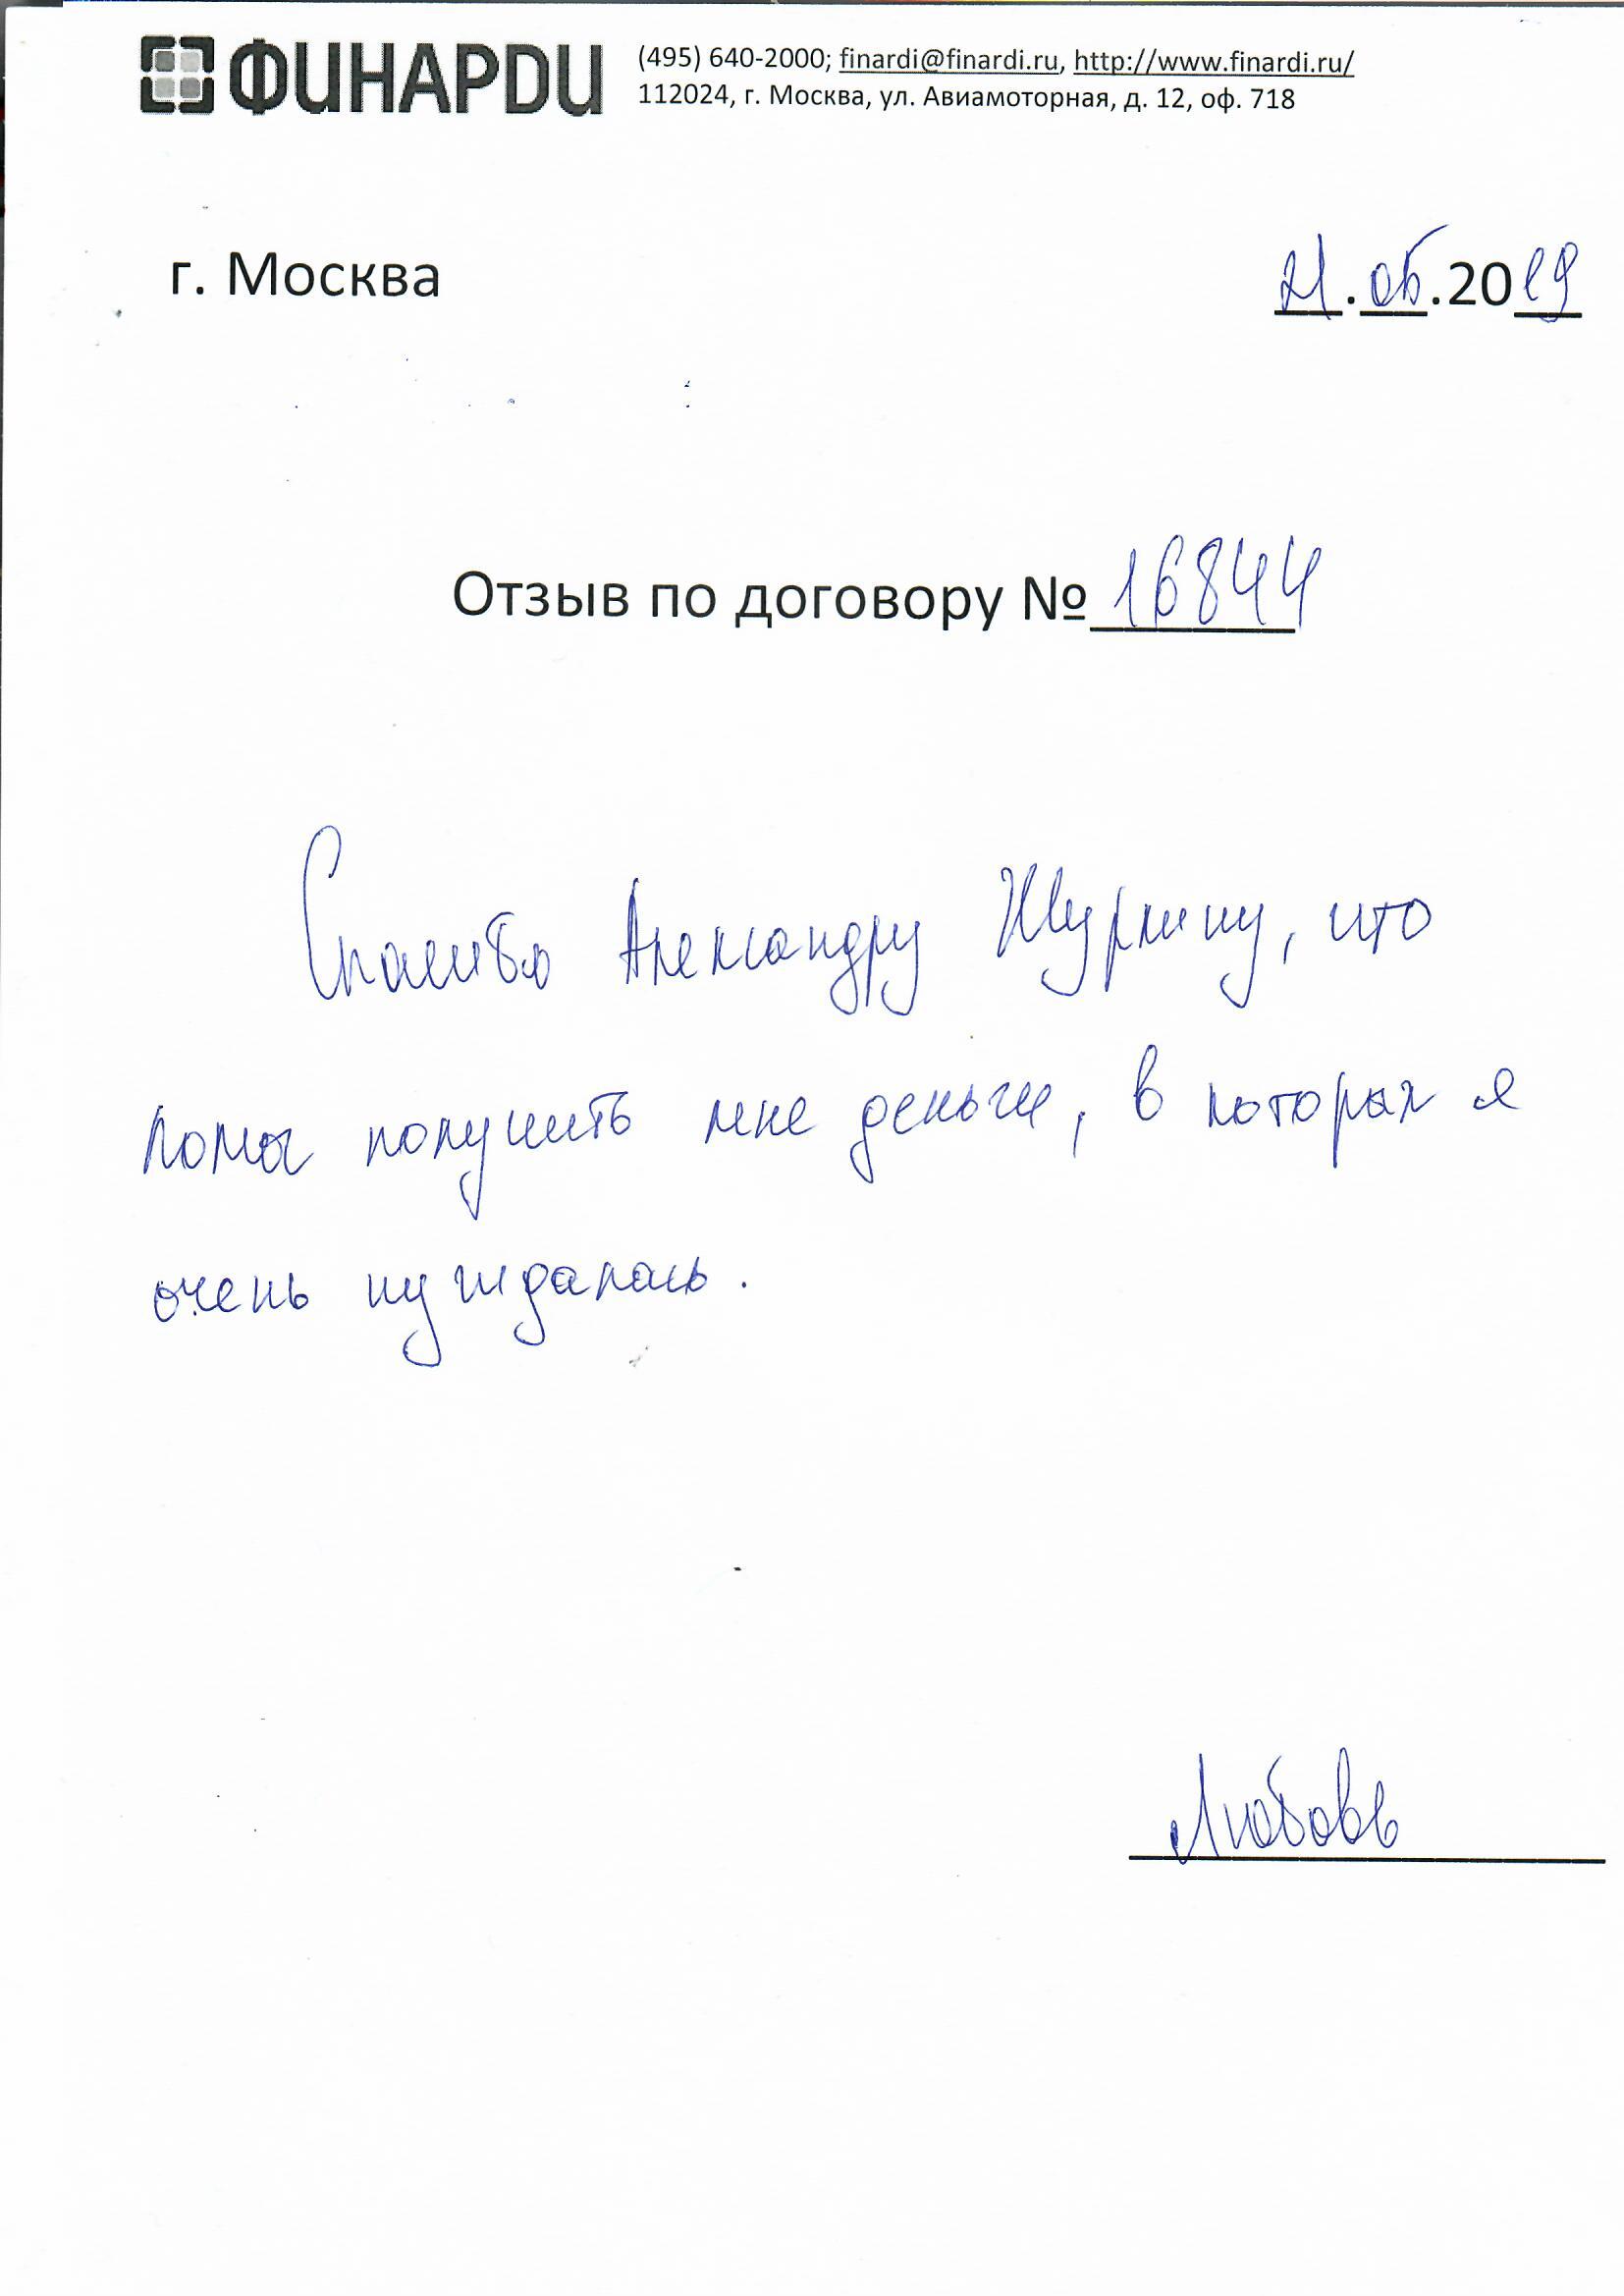 ФИНАРДИ
(495) 640-2000; finardi@finardi.ru, http://www.finardi.ru/
112024, г. Москва, ул. Авиамоторная, д. 12, оф. 718
г. Москва
21.05.2019
Отзыв по договору № 16844
Спасибо Александру Шуркину, что
помог получить мне деньги, в которых я
очень нуждалась.
Любовь